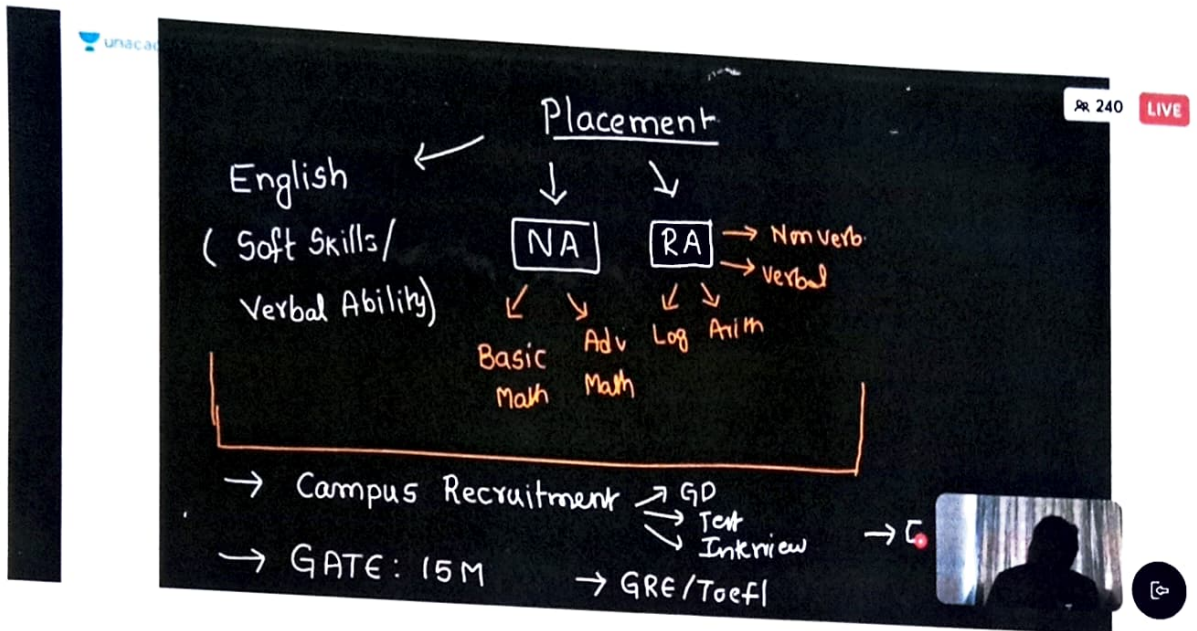 unacad
240
LIVE
Placement
English
(Soft Skills/
Verbal Ability)
NA
RA
Non verb.
Verbal
Basic
Math
Adv
Math
Log
Arith
→ Campus Recruitment
GD
Test
Interview
→ GATE: 15M
→ GRE/Toefl